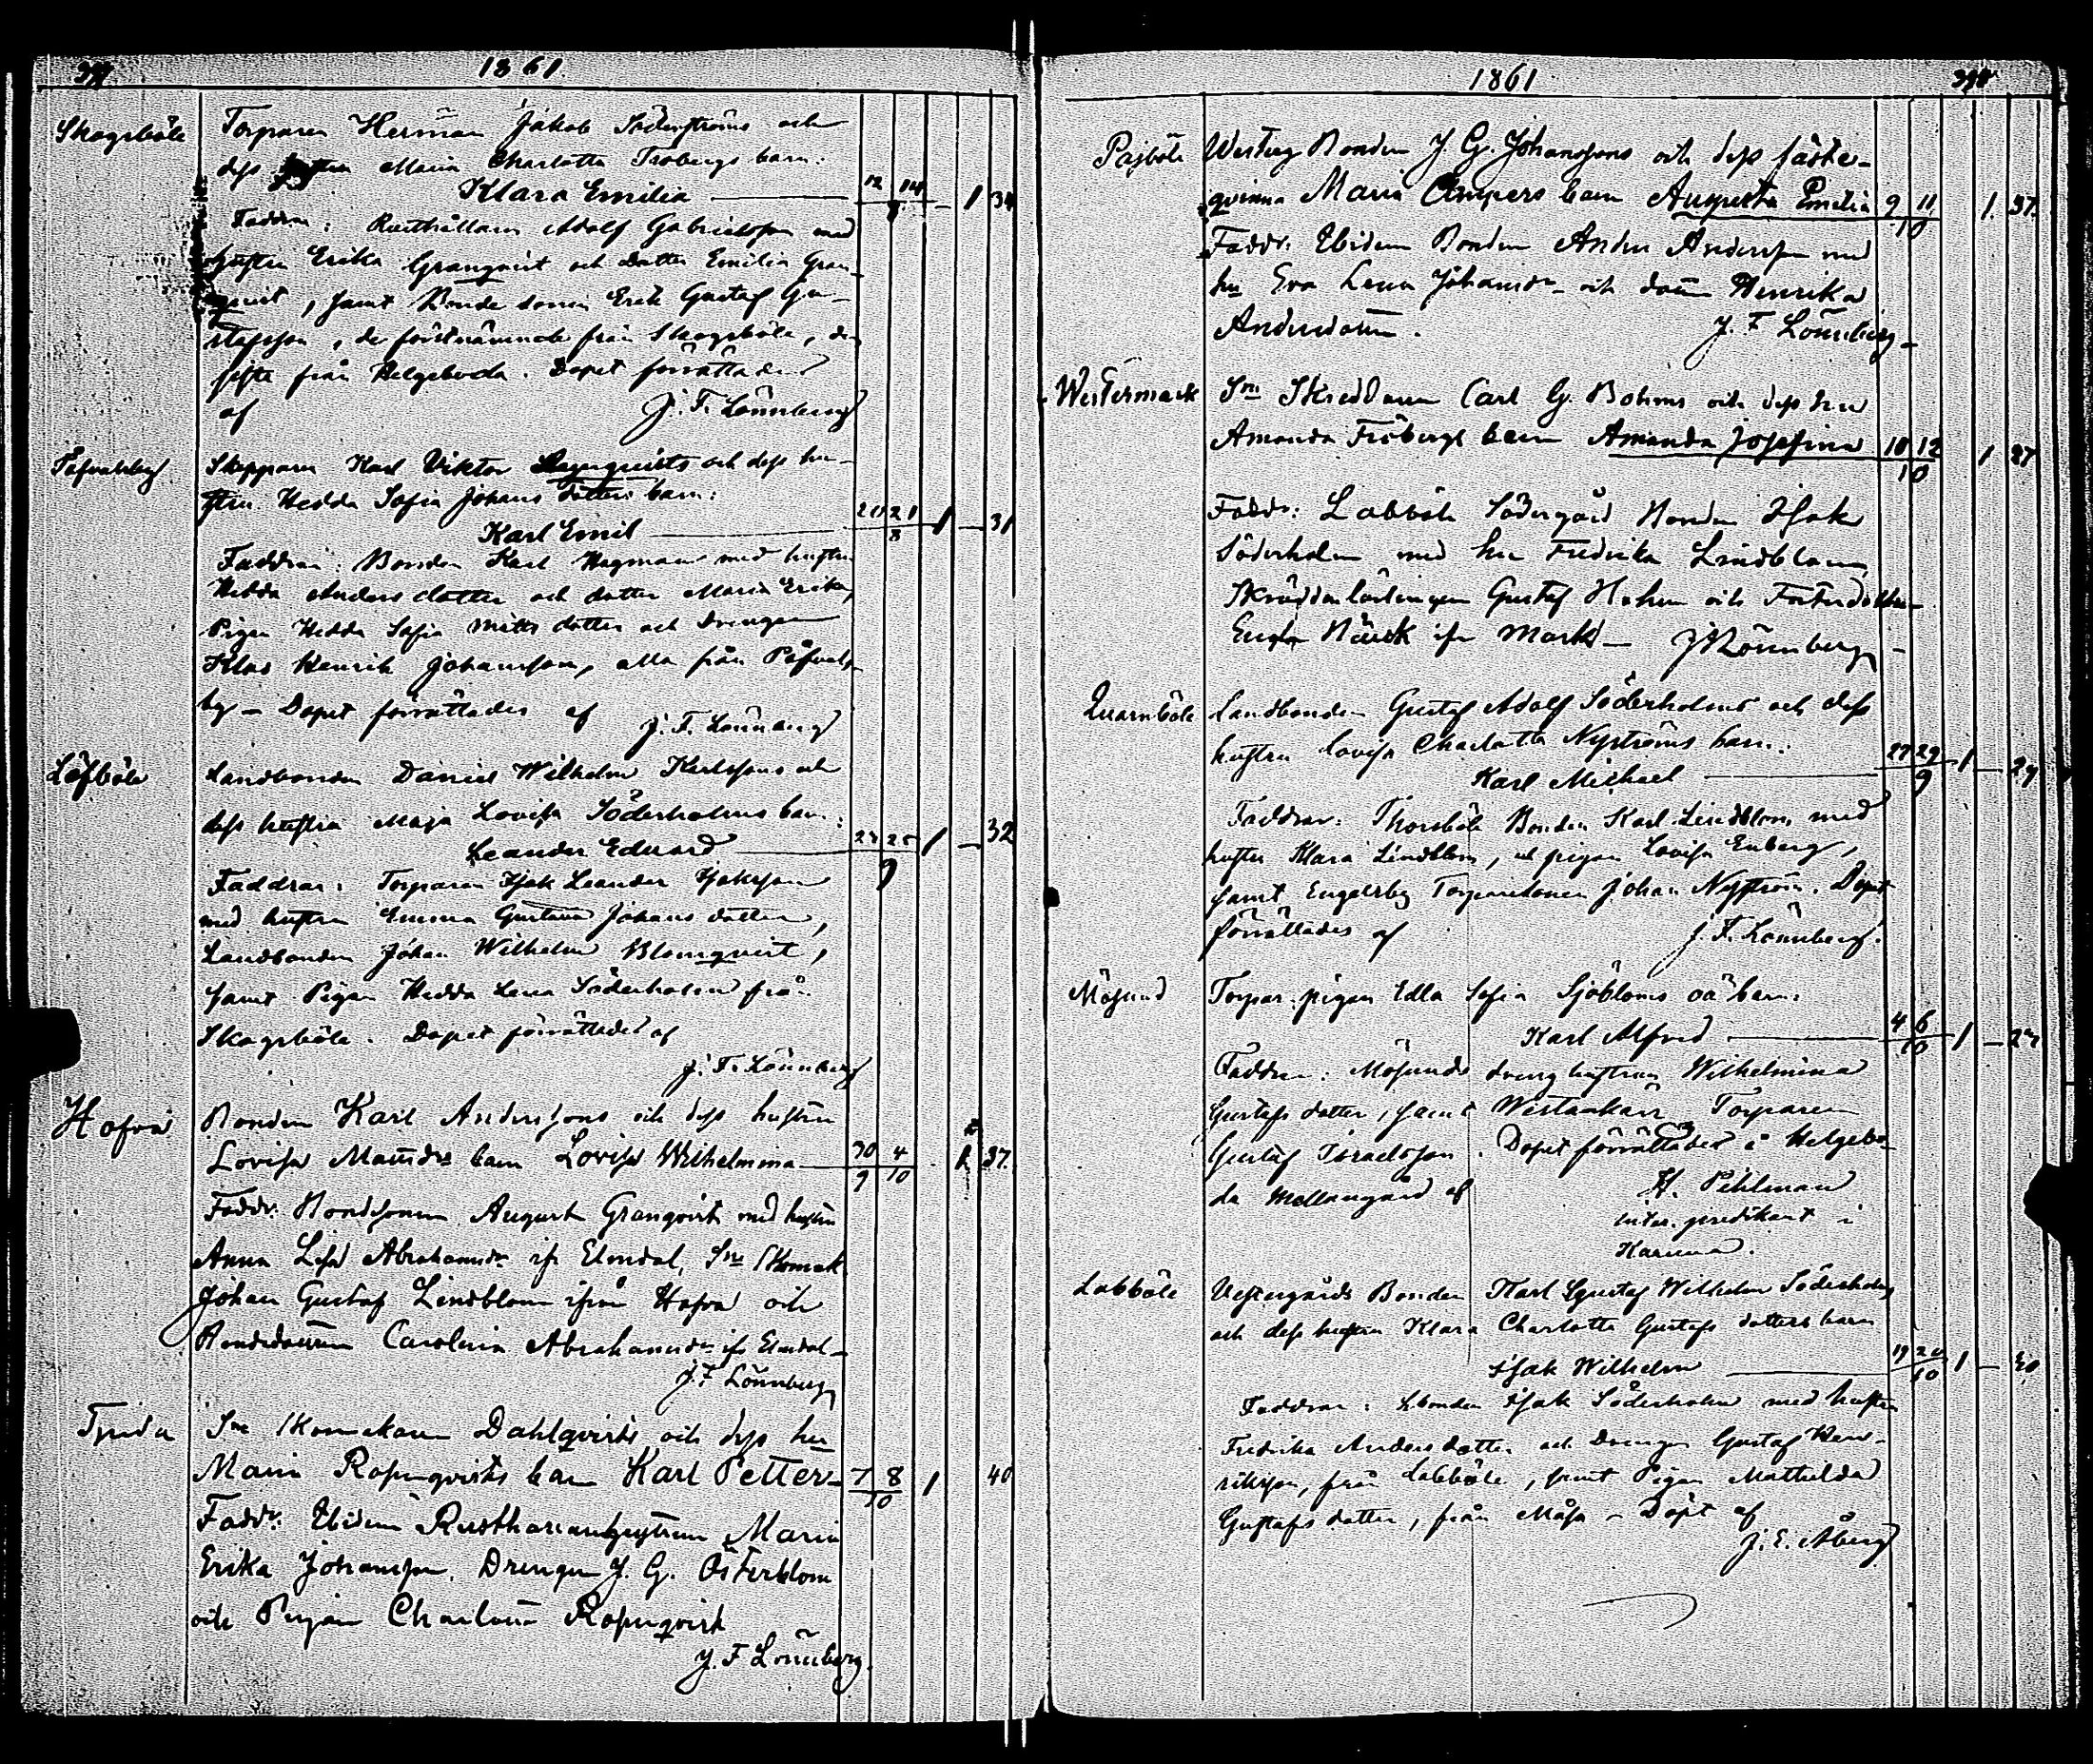 1861.
Skogsböle
Torparen Herman Jakob Söderströms och
dess Maria Charlotta Trobergs barn:
Klara Emilia 12 14 8 – 1 34
Faddrar: Rusthållaren Adolf Gabrielsson med
hustru Erika Granqvist och dotter Emilia Gran-
qvist, samt Bondesonen Erik Gustaf Gu-
stafsson, de förstnämnde från Skogsböle, den
siste från Helgeboda. Dopet förrättades
af J. F. Lönnberg
Skepparen Karl Viktor och dess hu-
strus Hedda Sofia Johans dotters barn:
Karl Emil 20 21 8 1 – 31
Faddrar: Bonden Karl Hagman med hustru
Hedda Anders dotter och dotter Maria Erika,
Pigan Hedda Sofia Matts dotter och Drengen
Klas Henrik Johansson, alla från
by – Dopet förrättades af J. F. Lönnberg
Löfböle
Landbonden Daniel Wilhelm Karlssons och
dess hustru Maja Lovisa Söderholms barn:
Leander Eduard 25 9 1 – 32
Faddrar: Torparen Isak Leander Isaksson
med hustru Emma Gustava Johans dotter,
Landbonden Johan Wilhelm Blomqvist,
samt Pigan Hedda Lena Söderholm från
Skogsböle. Dopet förrättades af
J. F. Lönnberg
Hofva
Bonden Karl Anderssons och dess hustru
Lovisa Mattsdrs barn Lovisa Wilhelmina 30 4 9 10 1 37.
Faddr. Bondsonen August Granqvist med hustru
Anna Lisa Abrahamsdr ifr Elmdal, Sn Skomak
Johan Gustaf Lindblom ifrån Hofva och
Bondedottren Carolina Abrahamsdr ifr Elmdal –
J. F. Lönnberg
Sn Skomakaren Dahlqvists och dess hu
Maria Rosenqvists barn Karl Petter – 7 8 10 1 40
Faddr: Ibidem Maria
Erika Johansson, Drengen J. G. Österblom
och Pigan Charlotta Rosenqvist
J. F. Lönnberg.
1861
Pajböle
Westerg Bonden J G. Johanssons och dess fäste-
qvinna Maria barn Augusta Emilia 9 11 10 1. 37.
Faddr. Ibidem Bonden Anders Andersson med
hu Eva Lena Johansdr och dottren Henrika
Andersdotter. J. F. Lönnberg –
Westermark
Sn Skreddaren Carl G. Bohms och dess hu
Amanda Fröbergs barn Amanda Josefina 10 12 10 1 27
Faddr: Labböle Södergård Bonden Isak
Söderholm med hu Fredrika Lindblom,
Skräddarlärlingen Gustaf och
ifr Mark – J F Lönnberg –
Quarnböle
Landbonden Gustaf Adolf Söderholms och dess
hustru Lovisa Charlotta Nyströms barn:
Karl Michael 27 29 9 1 –
Faddrar: Thorsböle Bonden Karl Lindblom med
hustru Klara Lindblom, och pigan Lovisa Enberg,
samt Engelsby Torparesonen Johan Nyström. Dopet
förrättades af J. F. Lönnberg.
Mösund
Torpar-pigan Edla Sofia Sjöbloms oä barn:
Karl Alfred 4 6 10 1 –
Faddrar: Mösunds dreng hustrun Wilhelmina
Gustafs dotter, samt Westankärr Torparen
Gustaf Israelsson. Dopet förrättades i Helgebo-
da Mellangård af H. Pihlman
inter. predikant i
Karuna.
Labböle
Vestergårds Bonden Karl Gustaf Wilhelm Söderholms
och dess hustru Klara Charlotta Gustafs dotters barn
Isak Wilhelm 19 20 10 1 –
Faddrar: Bonden Isak Söderholm med hustru
Fredrika Anders dotter och Drengen Gustaf Hen-
riksson, från Labböle, samt Pigan Mathilda
Gustafs dotter, från – Döpt af
J. E. Åberg